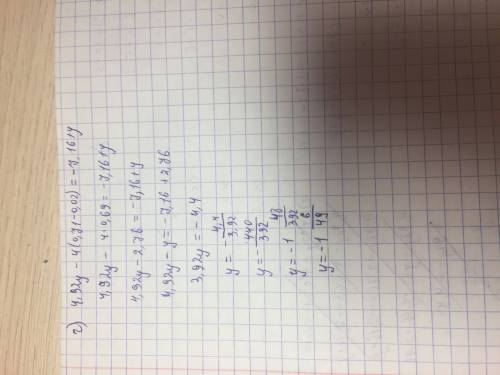 г) 4,92y - 4(0,71-0,02) = -7,16+y
4,92y - 4·0,69 = -7,16+y
4,92y - 2,76 = -7,16+y
4,92y - y = -7,16 + 2,76
3,92y = -4,4
y = - 4,4/3,92
y = - 440/392
y = -1 48/392
y = -1 6/49